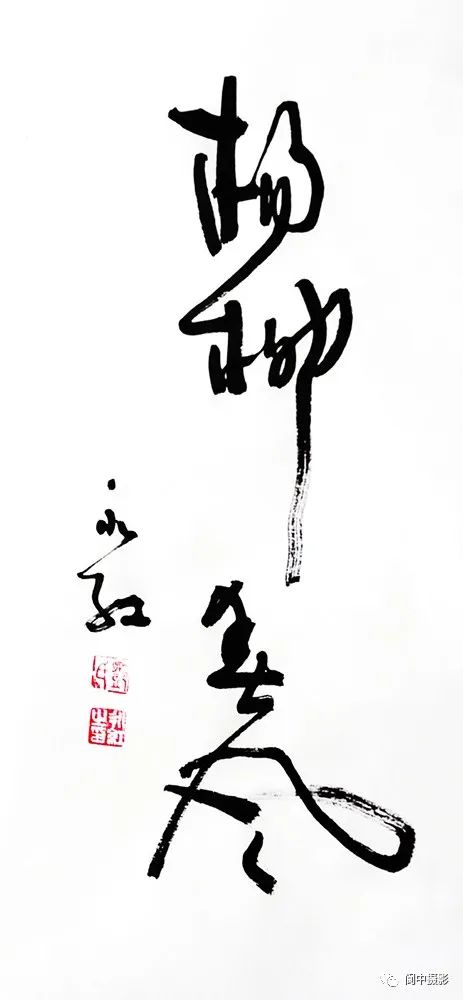 杨柳
春风
永红
阆中摄影